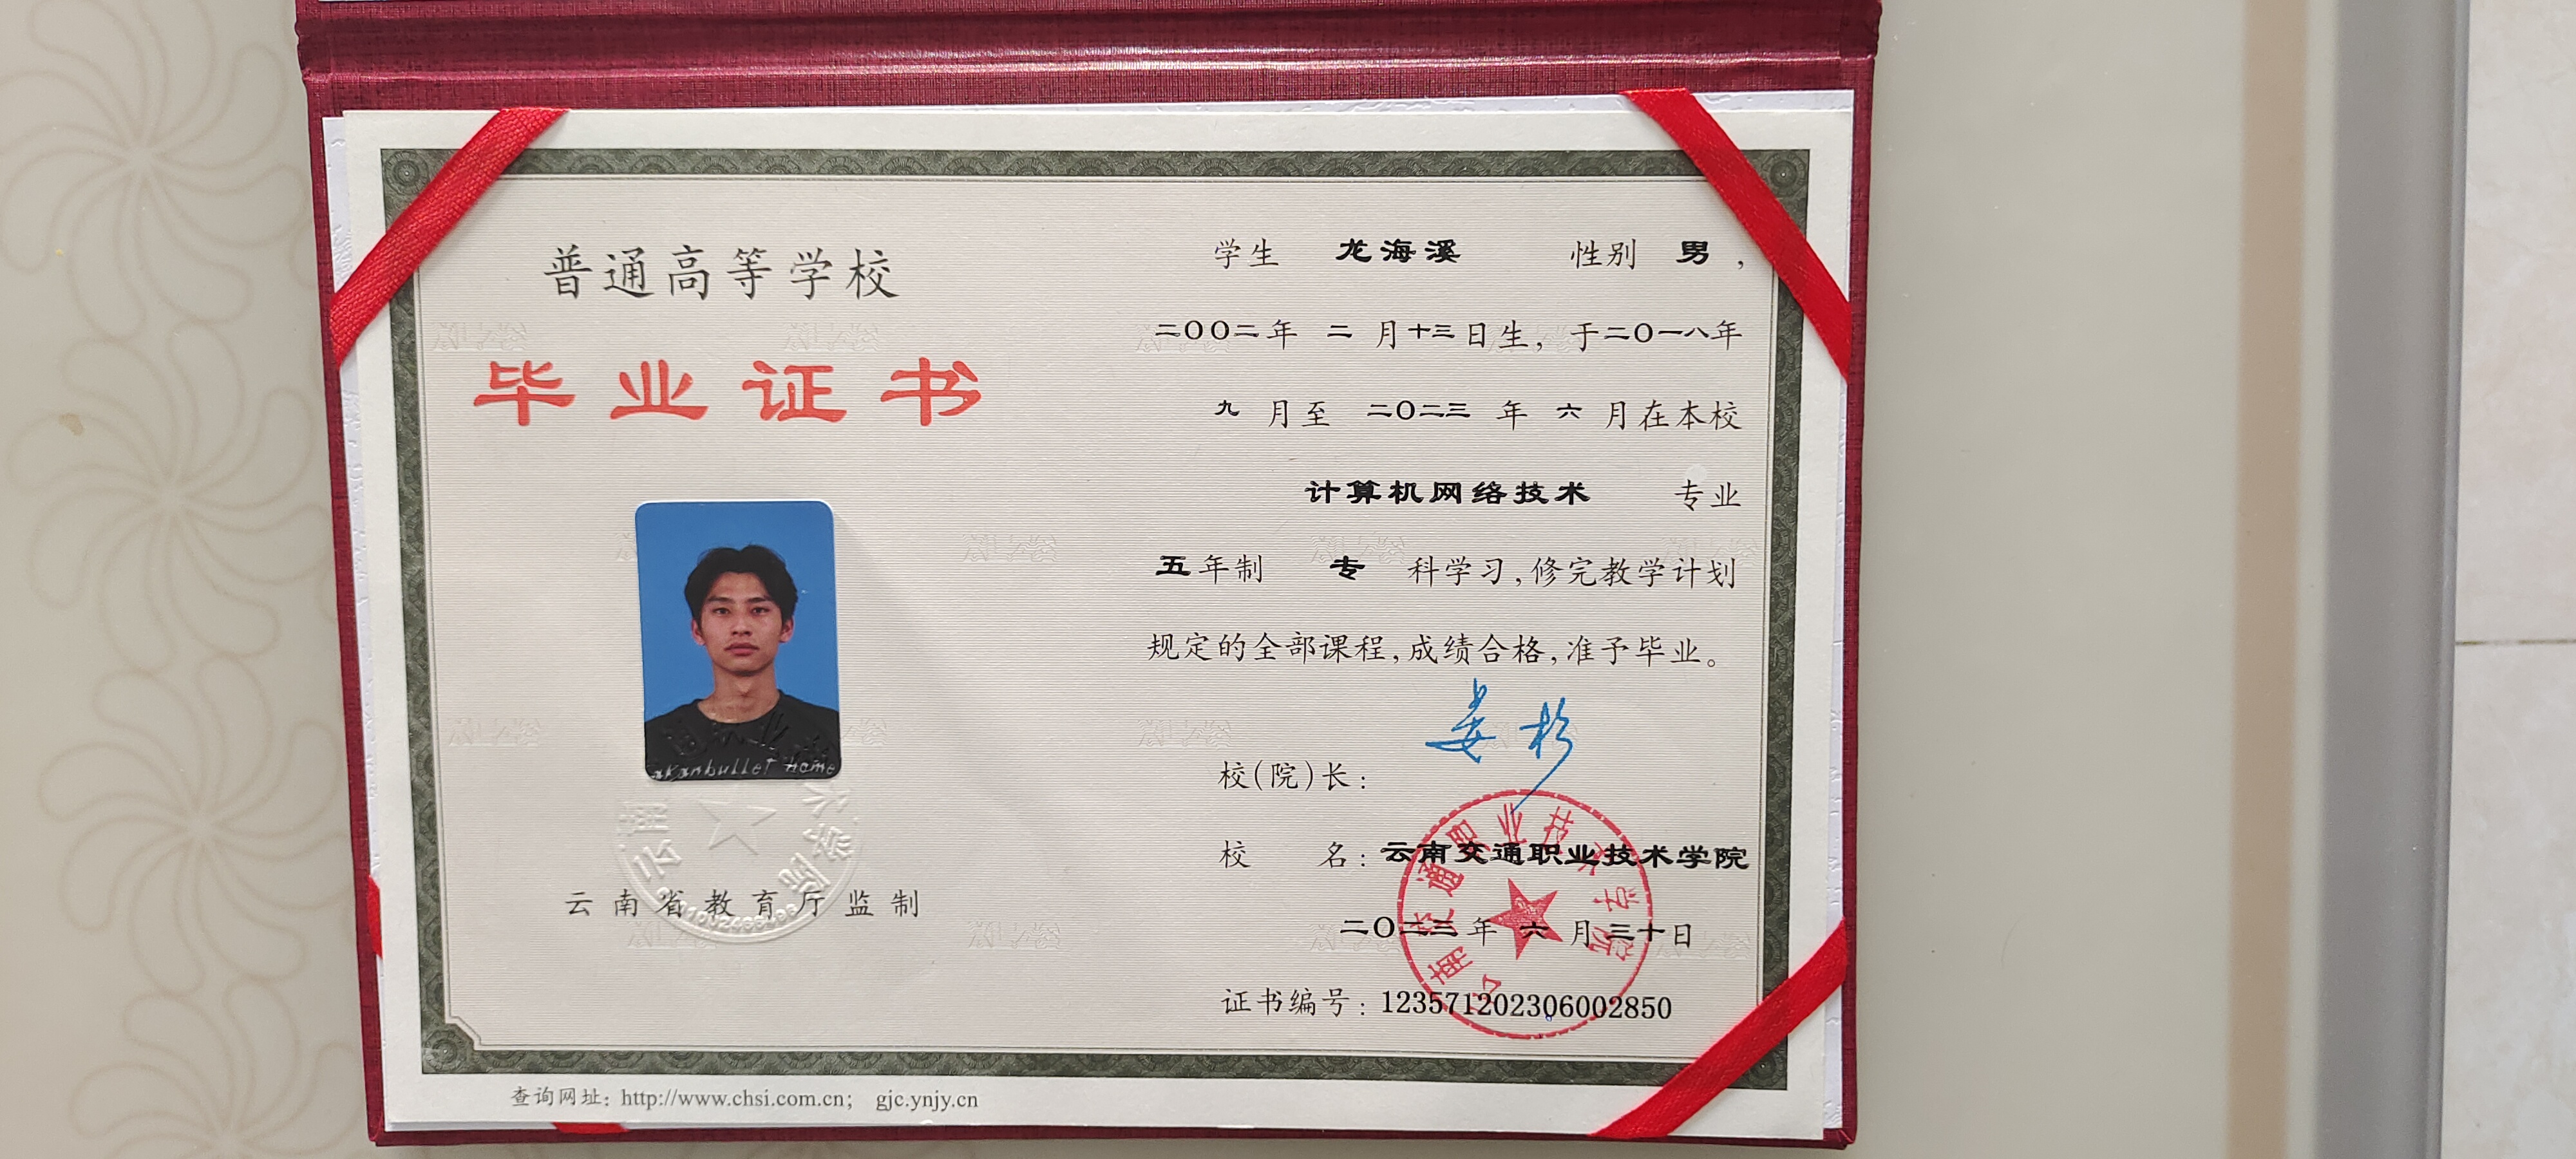 普通高等学校
毕业证书
akanbullet Home
云南省教育厅监制
学生 龙海溪 性别 男，
二〇〇二年 二 月十三日生，于二〇一八年
九 月至 二〇二三 年 六 月在本校
计算机网络技术 专业
五年制 专 科学习，修完教学计划
规定的全部课程，成绩合格，准予毕业。
校（院）长：
校 名：云南交通职业技术学院
云南交通职业技术学院
二〇二三年 六 月三十日
证书编号：123571202306002850
查询网址：http://www.chsi.com.cn； gjc.ynjy.cn